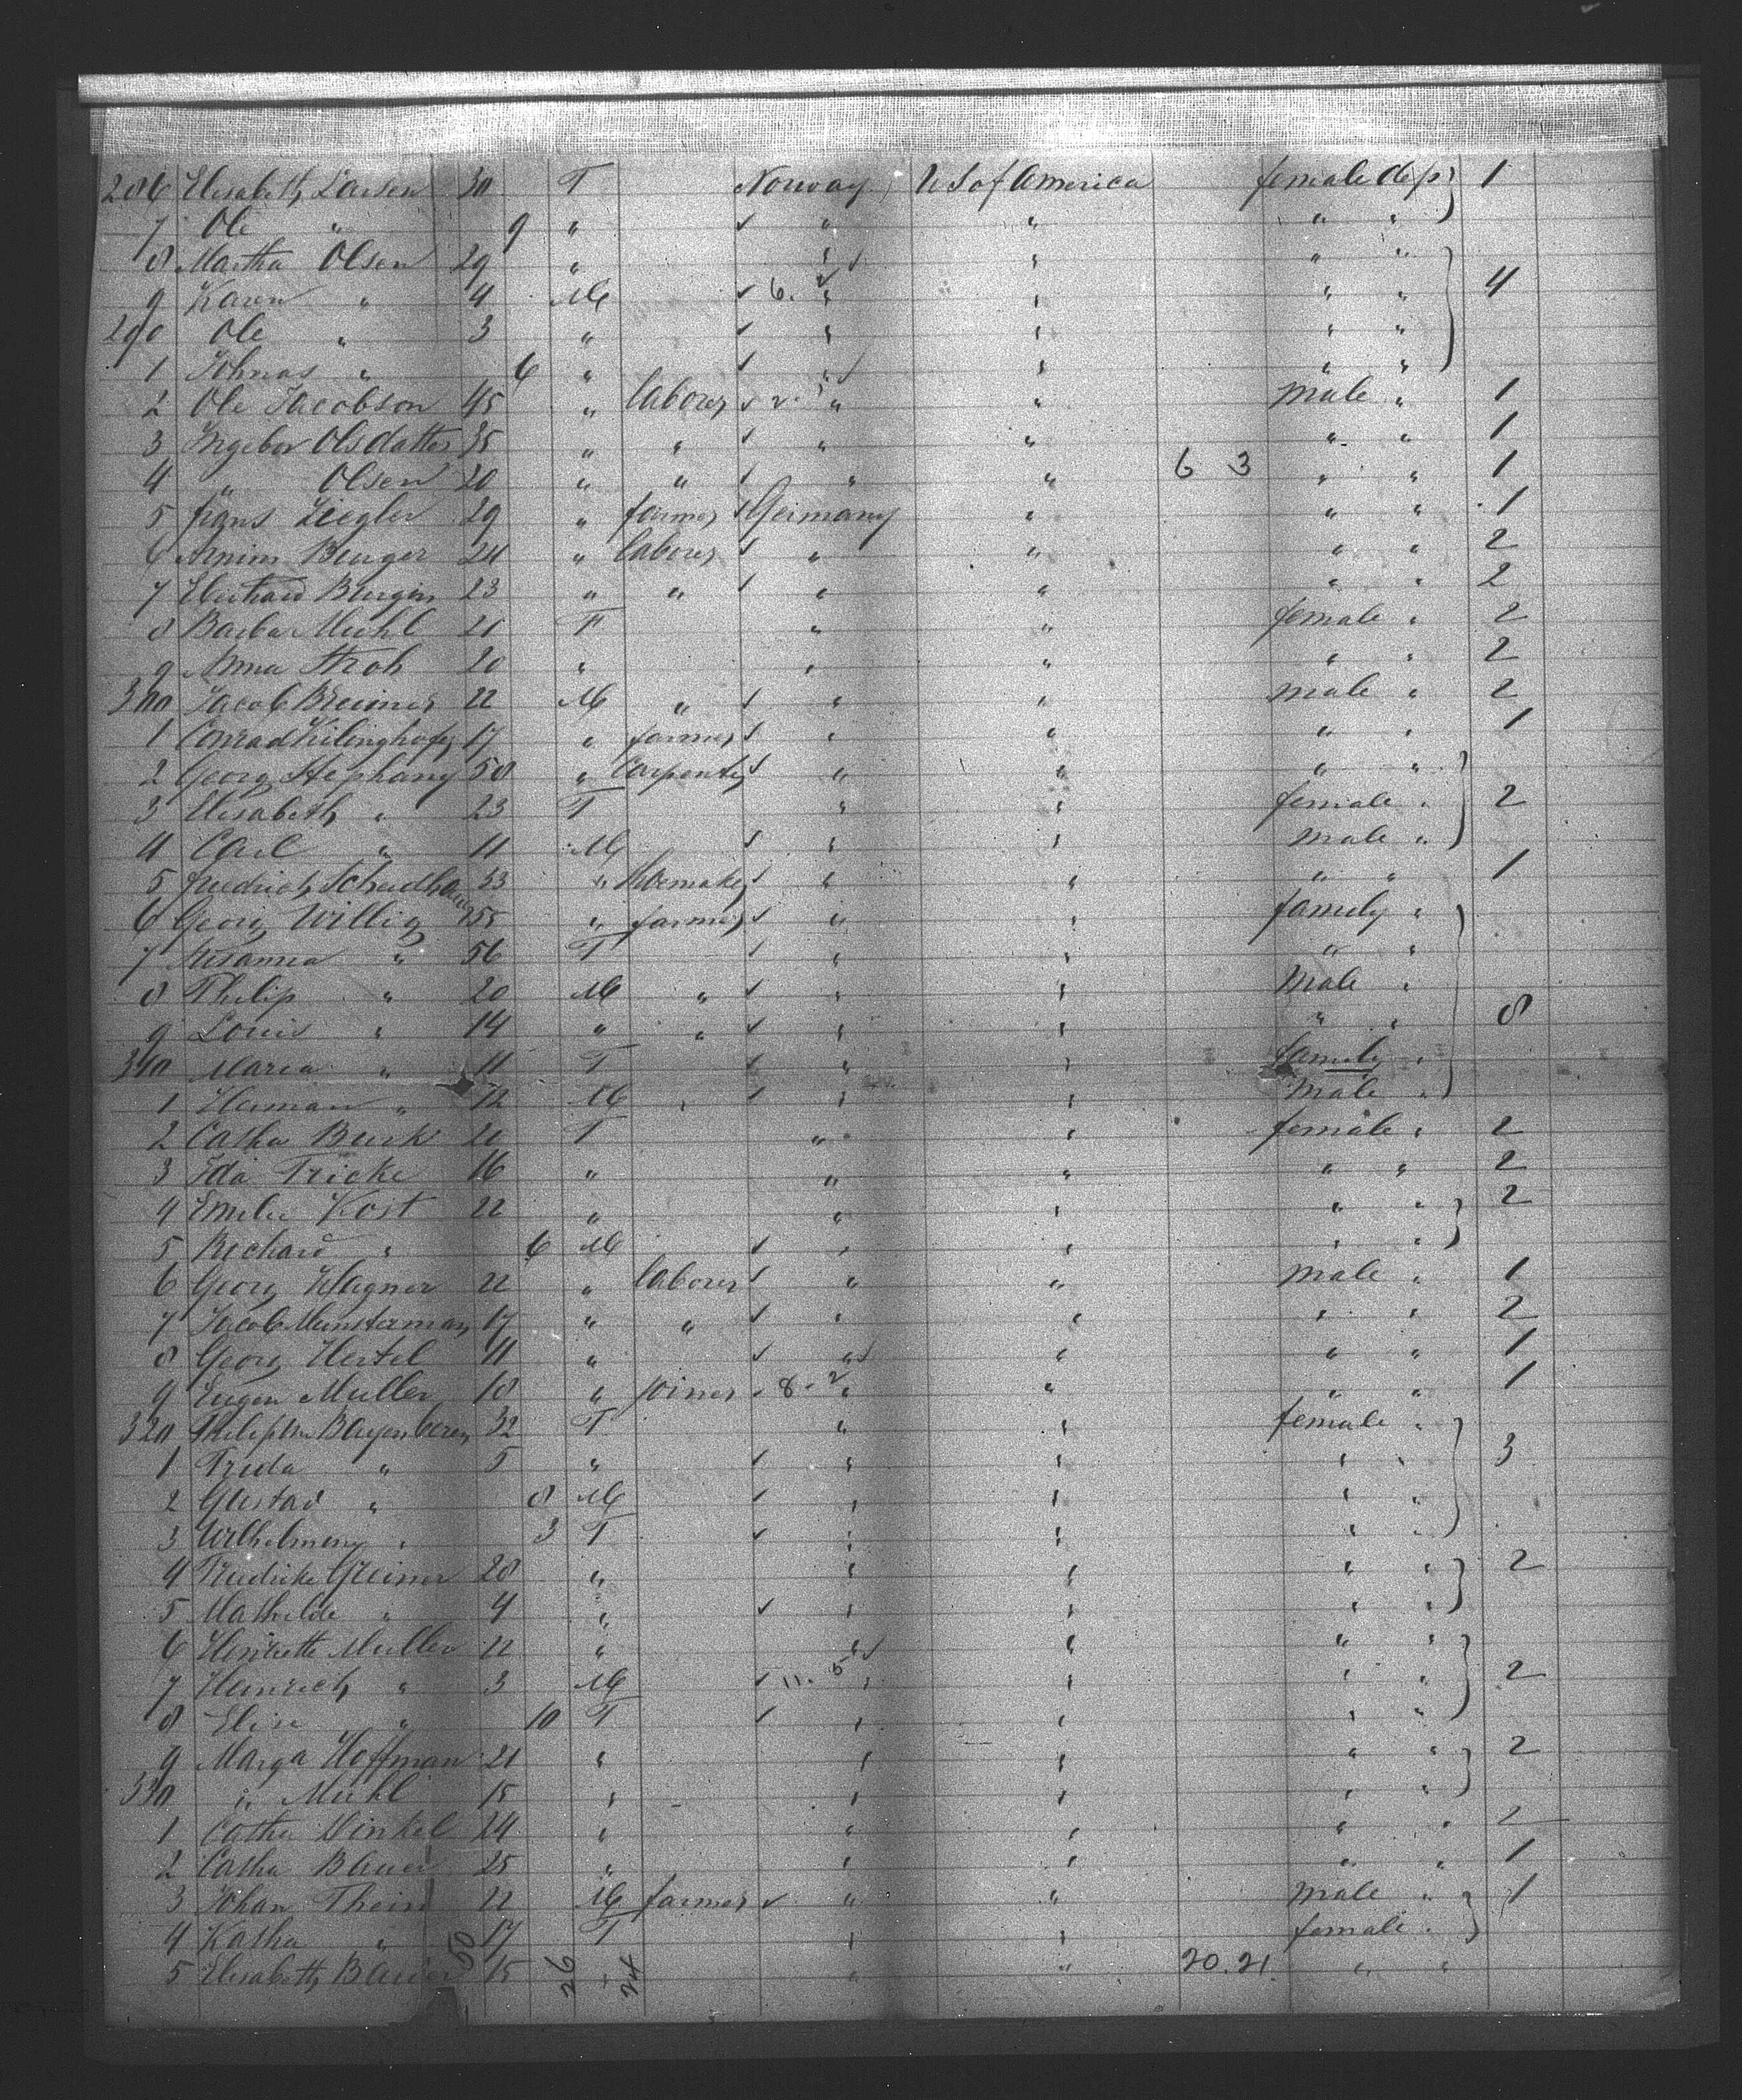 286 Elisabeth Larsen 30 F Norway US of America female dep 1
7 Ole " 9 " ✓ " " " "
8 Martha Olsen 29 " " " " "
9 Karen " 4 M ✓ 6. 2 " " " " 4
290 Ole " 3 " ✓ " " " "
1 Johnas " 6 " ✓ " " " "
2 Ole Jacobson 45 " laborer ✓ 2. " " male " 1
3 Ingebor Olsdatter 35 " " ✓ " " " " 1
4 " Olsen 20 " " ✓ " " 6 3 " " 1
5 frans Ziegler 29 " farmer ✓ Germany " " " 1
6 Armin Burger 24 " laborer ✓ " " " " 2
7 Eberhard Burgin 23 " " ✓ " " " " 2
8 Barba Muhl 21 F " " female " 2
9 Anna Stroh 20 " " " " " 2
300 Jacob Breimer 22 M " ✓ " " male " 2
1 Conrad Kilinghofer 17 " farmer ✓ " " " " 1
2 Georg Stephany 58 " Carpenter ✓ " " " "
3 Elisabeth " 23 F " " female " 2
4 Carl " 11 M ✓ " " male "
5 friedrich 53 " Shoemaker ✓ " " " " 1
6 Georg Willig 55 " farmer ✓ " " family "
7 " 56 F ✓ " " " "
8 Philip " 20 M " ✓ " " Male "
9 Louis " 14 " " ✓ " " " " 8
310 Maria " 11 F ✓ " " family "
1 Herman " 12 M " ✓ " " Male "
2 Catha Burk 21 F " " female " 2
3 Ida Fricke 16 " " " " " 2
4 Emilie Kost 22 " " " " " 2
5 Richard " 6 M ✓ " " " "
6 Georg Wagner 22 " laborer ✓ " " male " 1
7 Jacob Munsterman 17 " " ✓ " " " " 2
8 Georg Hertel 11 " ✓ " " " " 1
9 Eugen Muller 18 " joiner 8 - 2 " " " " 1
320 32 F " " female "
1 Frieda " 5 " ✓ " " " " 3
2 Gustav " 8 M ✓ " " " "
3 Wilhelmeny " 3 F ✓ " " " "
4 Friedricke Greiner 28 " " " " " 2
5 Mathilde " 4 " ✓ " " " "
6 Henriette Muller 22 " " " " "
7 Heinrich " 3 M ✓ 11. 5 " " " " 2
8 Elise " 10 F ✓ " " " "
9 Marga Hoffman 21 " " " " " 2
330 " Muhl 15 " " " " "
1 Catha Dinkel 24 " " " " " 2
2 Catha Bauer 25 " " " " " 1
3 Johan Thein 22 M farmer ✓ " " male " 1
4 Katha " 17 F " " female "
5 Elisabeth Bauer 15 " " " 20.21. " "
50 26 24